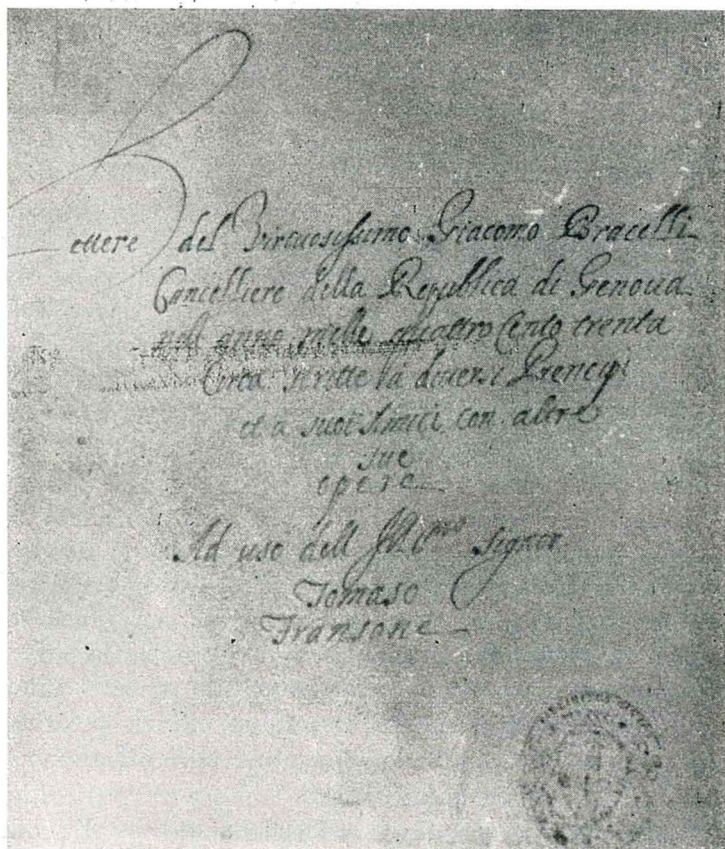 Lettere del Virtuosissimo Giacomo Bracelli
Concelliere della Republica di Genova
nell anno mille quattro Cento trenta
Circa scritte a diversi Prencipi
et a suoi Amici con altre
sue
opere
Ad uso dell Ill.mo Signor
Tomaso
Fransone